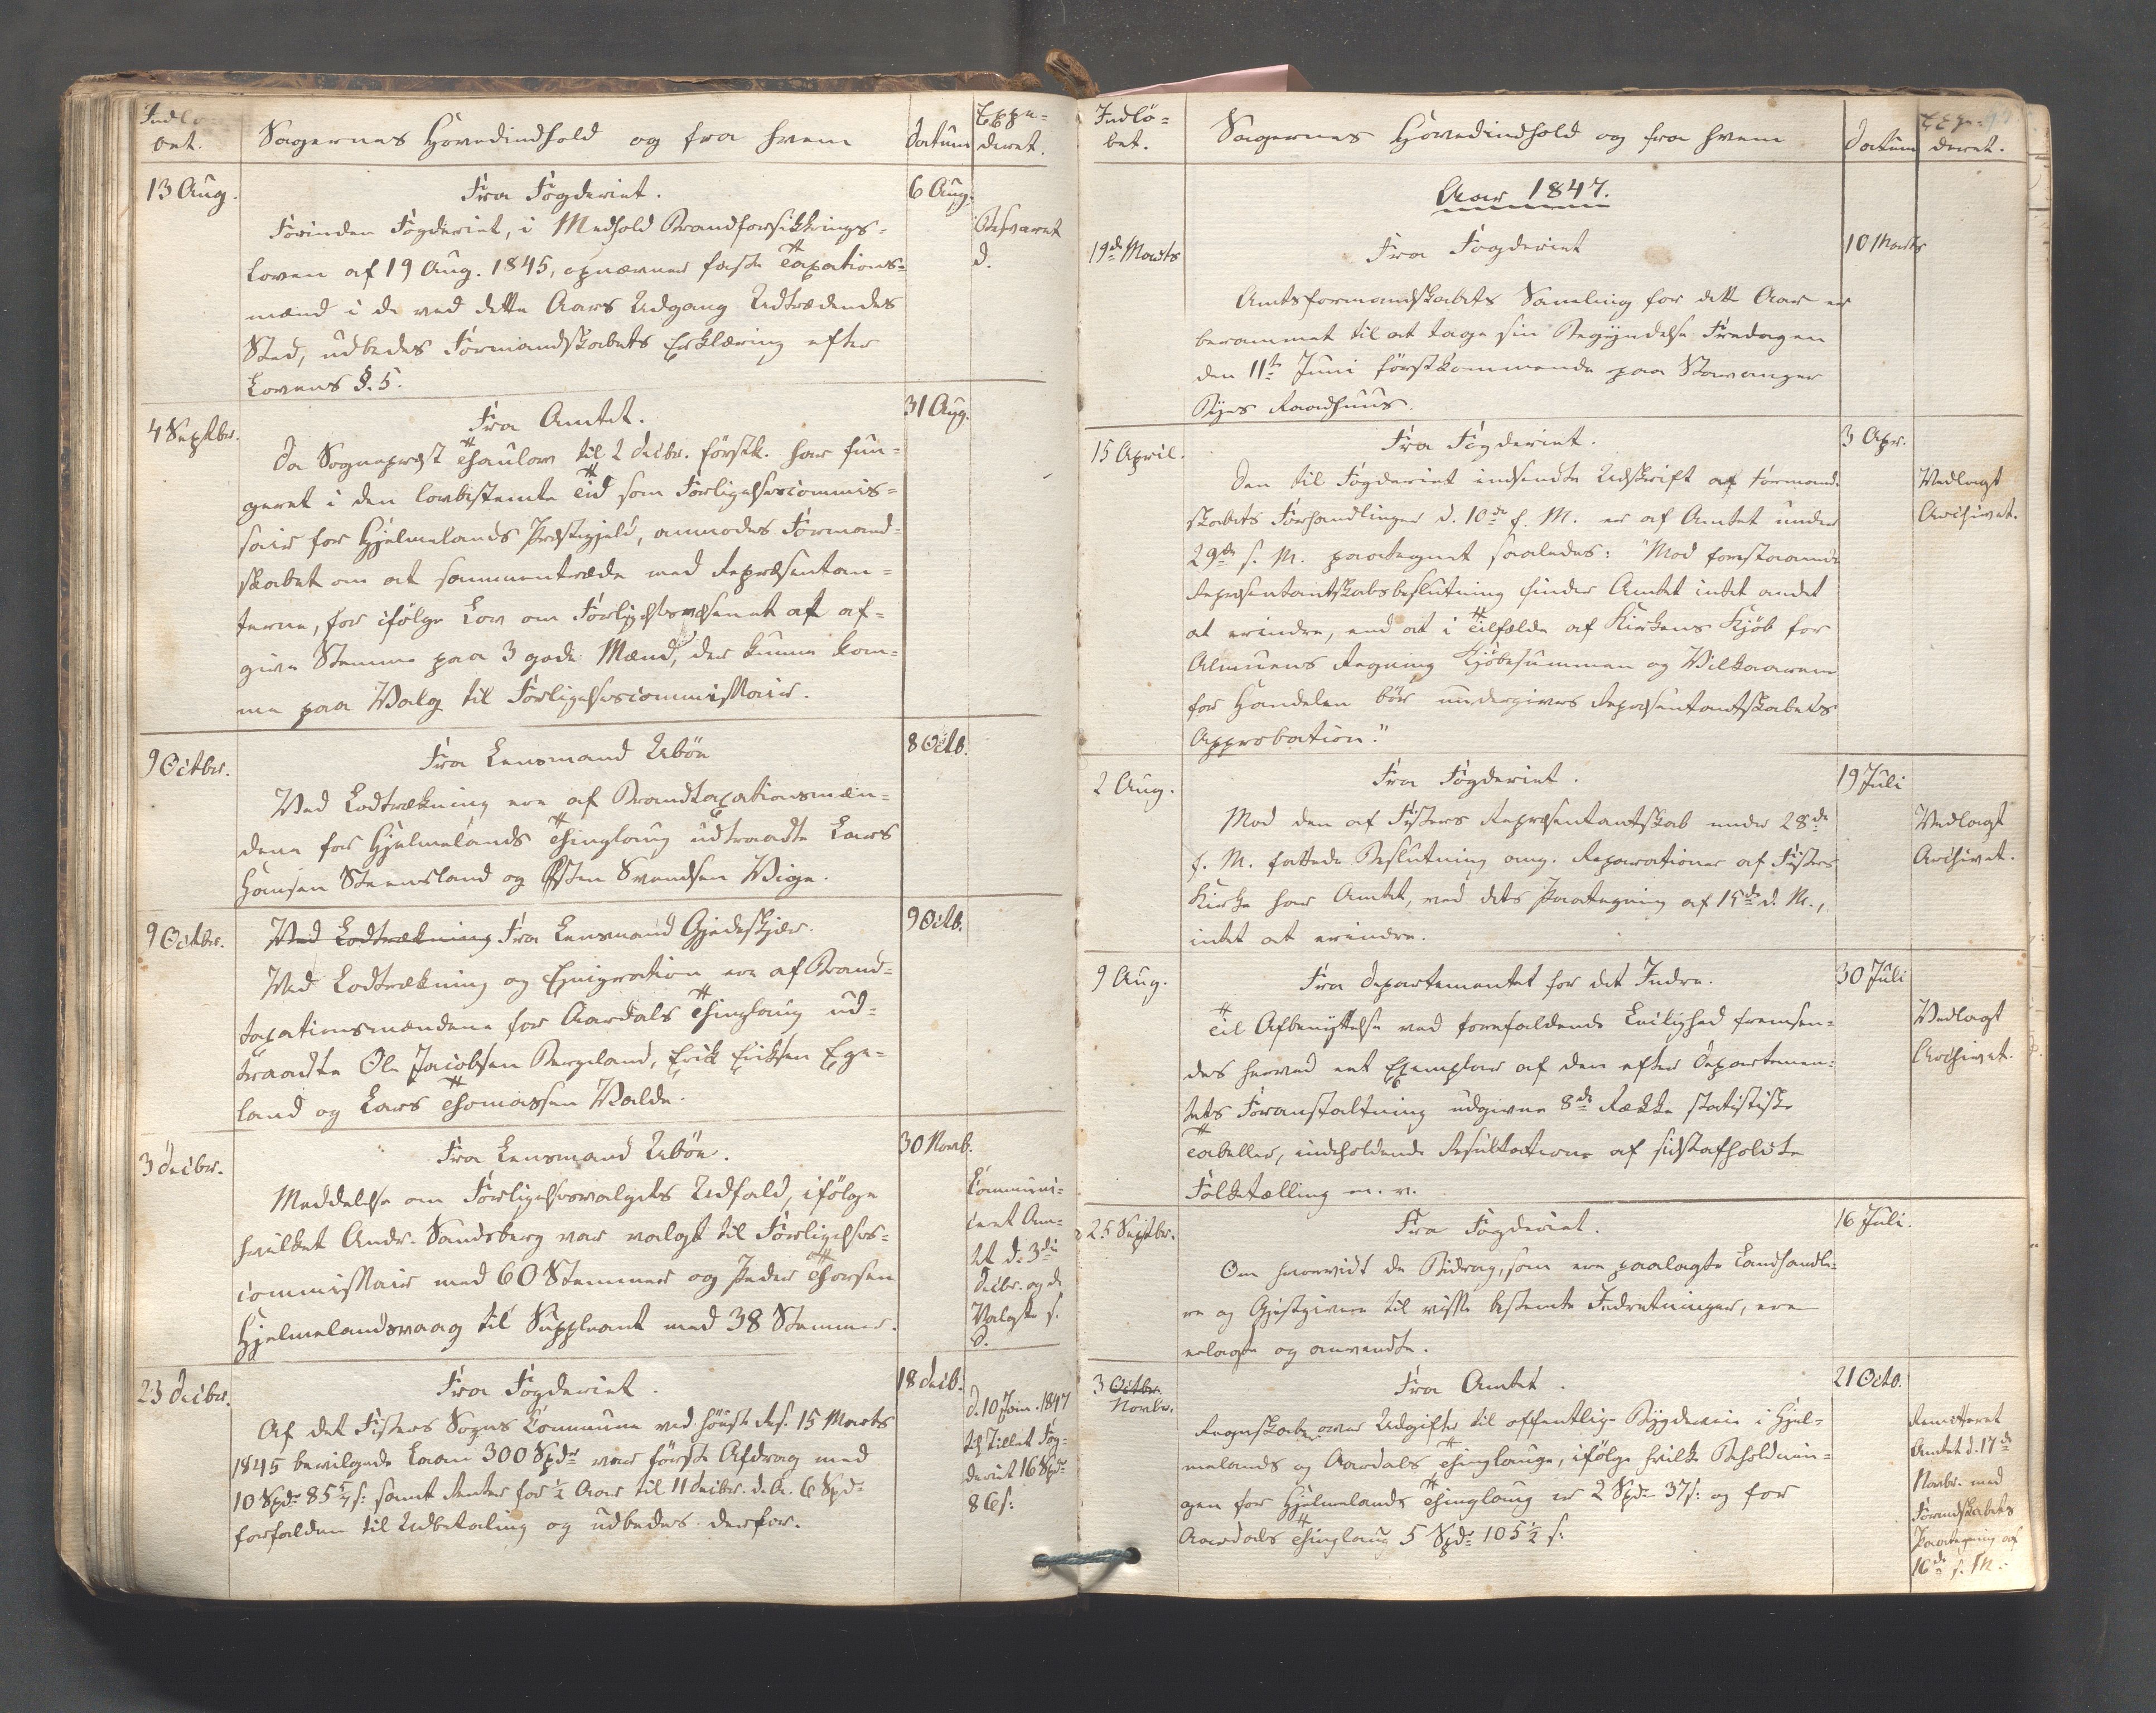 Indlø-
bet.
Sagernes Hovedindhold og fra hvem
Datum
Expe-
deret.
13 Aug.
Fra Fogderiet.
6 Aug.
Forinden Fogderiet, i Medhold Brandforsikkrings-
Besvaret
loven af 19 Aug. 1845, opnævner faste Taxations-
d.
mænd i de ved dette Aars Udgang Udtrædendes
Sted, udbedes Formandskabets Erklæring efter
Lovens §. 5.
4 Septbr.
Fra Amtet.
31 Aug.
Da Sognepræst Thaulow til 2 Decbr. førstk. har fun-
geret i den lovbestemte Tid som Forligelsescommis-
sair for Hjelmelands Præstegjeld, anmodes Formand-
skabet om at sammentræde med Repræsentan-
terne, for ifølge Lov om Forligelsesvæsenet at af-
give Stemme paa 3 gode Mænd, der kunne kom-
me paa Valg til Forligelsescommissair.
9 Octbr.
Fra Lensmand Ubøe
8 Octb.
Ved Lodtrækning ere af Brandtaxationsmæn-
dene for Hjelmelands Thinglaug udtraadte Lars
Hansen Steensland og Østen Svendsen Vige.
9 Octbr.
Ved Lodtrækning Fra Lensmand Gjedeskjær.
9 Octb.
Ved Lodtrækning og Emigration ere af Brand-
taxationsmændene for Aardals Thinglaug ud-
traadte Ole Jacobsen Bergeland, Erik Eriksen Ege-
land og Lars Thomassen Valde.
3 Decbr.
Fra Lensmand Ubøe.
30 Novb.
Meddelelse om Forligelsesvalgets Udfald, ifølge
hvilket Andr. Sandsberg var valgt til Forligelses-
commissair med 60 Stemmer og Peder Thorsen
Hjelmelandsvaag til Suppleant med 38 Stemmer.
Communi-
ceret Am-
tet d. 3die
Decbr. og de
Valgte s.
D.
23 Decbr.
Fra Fogderiet.
18 Decb.
Af det Fisters Sogns Commune ved høieste Res. 15 Marts
1845 bevilgede Laan 300 Spdr var første Afdrag med
10 Spdr 85 s: samt Renter for ½ Aar til 11 Decbr. d. A. 6 Spdr
forfalden til Udbetaling og udbedes derfor.
d. 10 Jan. 1847
tilstillet Fog-
deriet 16 Spdr
86 s:
Indlø-
bet.
Sagernes Hovedindhold og fra hvem
Datum
Expe-
deret.
Aar 1847.
19de Marts
Fra Fogderiet
10 Marts
Amtsformandskabets Samling for dette Aar er
berammet til at tage sin Begyndelse Fredagen
den 11te Juni førstkommende paa Stavanger
Byes Raadhuus.
15 April.
Fra Fogderiet.
3 Apr.
Den til Fogderiet indsendte Udskrift af Formand-
skabets Forhandlinger d. 10de f. M. er af Amtet under
29de s. M. paategnet saaledes: "Mod forestaaende
Repræsentantskabsbeslutning finder Amtet intet andet
at erindre, end at i Tilfælde af Kirkens Kjøb for
Almuens Regning Kjøbesummen og Vilkaarene
for Handelen bør undergives Repræsentantskabets
Approbation."
Vedlagt
Archivet.
2 Aug.
Fra Fogderiet.
19 Juli
Mod den af Fisters Repræsentantskab under 28de
f. M. fattede Beslutning ang. Reparationer af Fisters
Kirke har Amtet, ved dets Paategning af 15de d. M.,
intet at erindre.
Vedlagt
Archivet.
9 Aug.
Fra Departementet for det Indre.
30 Juli
Til Afbenyttelse ved forefaldende Leilighed fremsen-
des herved eet Exemplar af den efter Departemen-
tets Foranstaltning udgivne 8de Række statistiske
Tabeller, indeholdende Resultatione af sidstafholdte
Folketælling m. v.
Vedlagt
Archivet.
25 Septbr.
Fra Fogderiet.
16 Juli.
Om hvorvidt de Bidrag, som ere paalagte Landhandle-
re og Gjestgivere til visse bestemte Indretninger, ere
erlagte og anvendte.
3 Octbr.
Novbr.
Fra Amtet.
21 Octb.
Regnskaber over Udgifter til offentlige Bygdeveie i Hjel-
melands og Aardals Thinglauge, ifølge hvilke Beholdnin-
gen for Hjelmelands Thinglaug er 2 Spdr 37 s: og for
Aardals Thinglaug 5 Spdr 105½ s:
Remitteret
Amtet d. 17de
Novbr. med
Formdskabets
Paategning af
16de s. M.